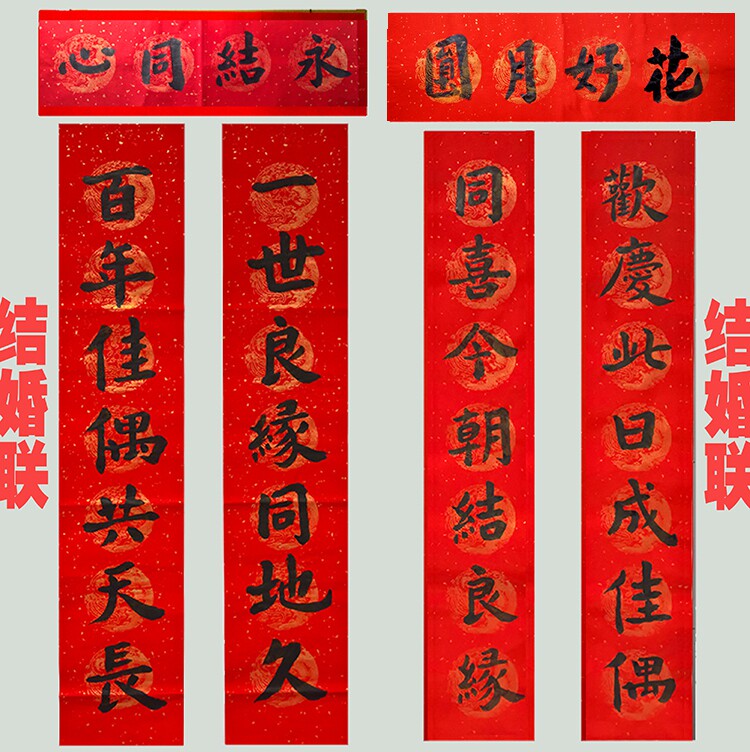 永結同心
一世良緣同地久
百年佳偶共天長
花好月圓
歡慶此日成佳偶
同喜今朝結良緣
结婚联
结婚联